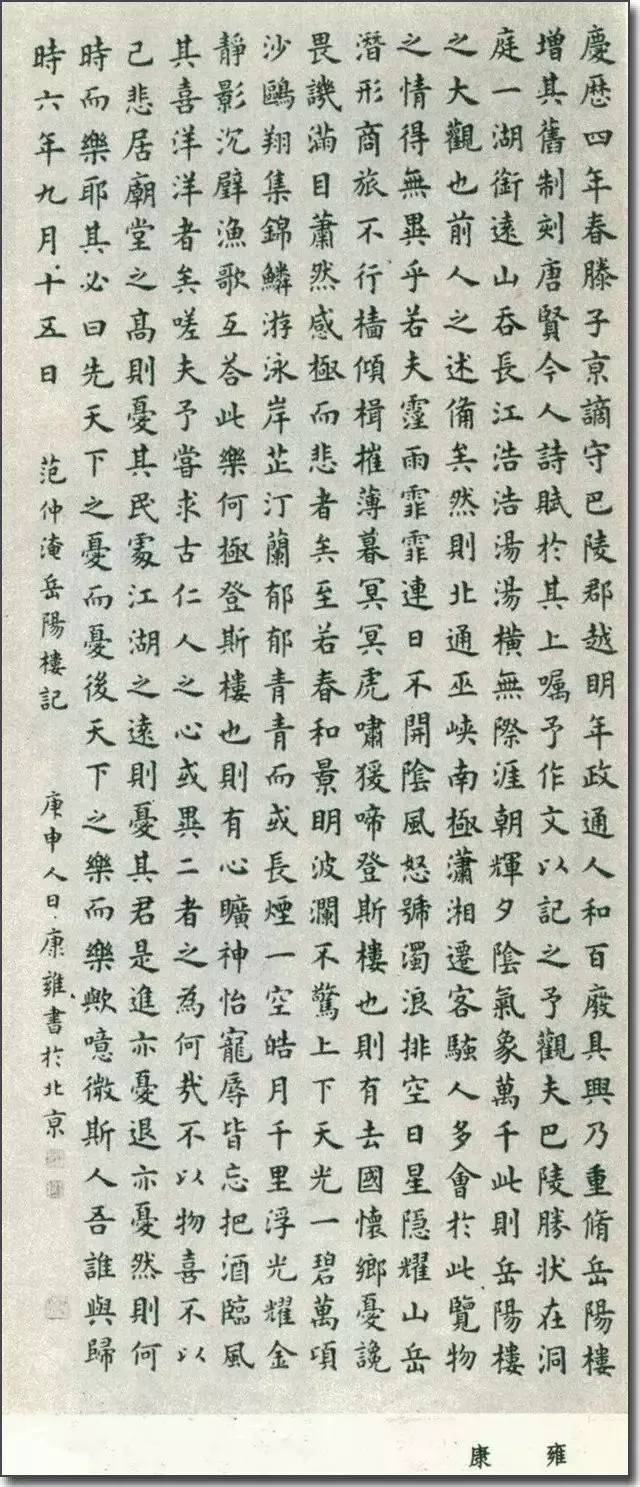 慶歷四年春滕子京謫守巴陵郡越明年政通人和百廢具興乃重脩岳陽樓
增其舊制刻唐賢今人詩賦於其上嘱予作文以記之予觀夫巴陵勝状在洞
庭一湖銜遠山吞長江浩浩湯湯橫無際涯朝輝夕陰氣象萬千此則岳陽樓
之大觀也前人之述俻矣然則北通巫峽南極瀟湘遷客騷人多會於此覽物
之情得無異乎若夫霪雨霏霏連日不開陰風怒號濁浪排空日星隠耀山岳
潛形商旅不行檣傾楫摧薄暮冥冥虎嘯猨啼登斯樓也則有去國懷鄉憂讒
畏譏滿目蕭然感極而悲者矣至若春和景明波瀾不驚上下天光一碧萬頃
沙鷗翔集錦鱗游泳岸芷汀蘭郁郁青青而或長煙一空皓月千里浮光耀金
靜影沉璧漁歌互荅此樂何極登斯樓也則有心曠神怡寵辱皆忘把酒臨風
其喜洋洋者矣嗟夫予嘗求古仁人之心或異二者之為何㢤不以物喜不以
己悲居廟堂之髙則憂其民處江湖之遠則憂其君是進亦憂退亦憂然則何
時而樂耶其必曰先天下之憂而憂後天下之樂而樂歟噫微斯人吾誰與歸
時六年九月十五日
范仲淹岳陽樓記
庚申人日康雍書於北京
康雍